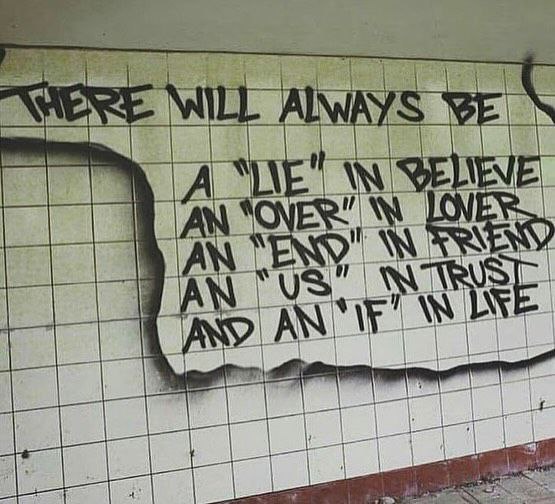 THERE WILL ALWAYS BE
A "LIE" IN BELIEVE
AN "OVER" IN LOVER
AN "END" IN FRIEND
AN "US" IN TRUST
AND AN "IF" IN LIFE